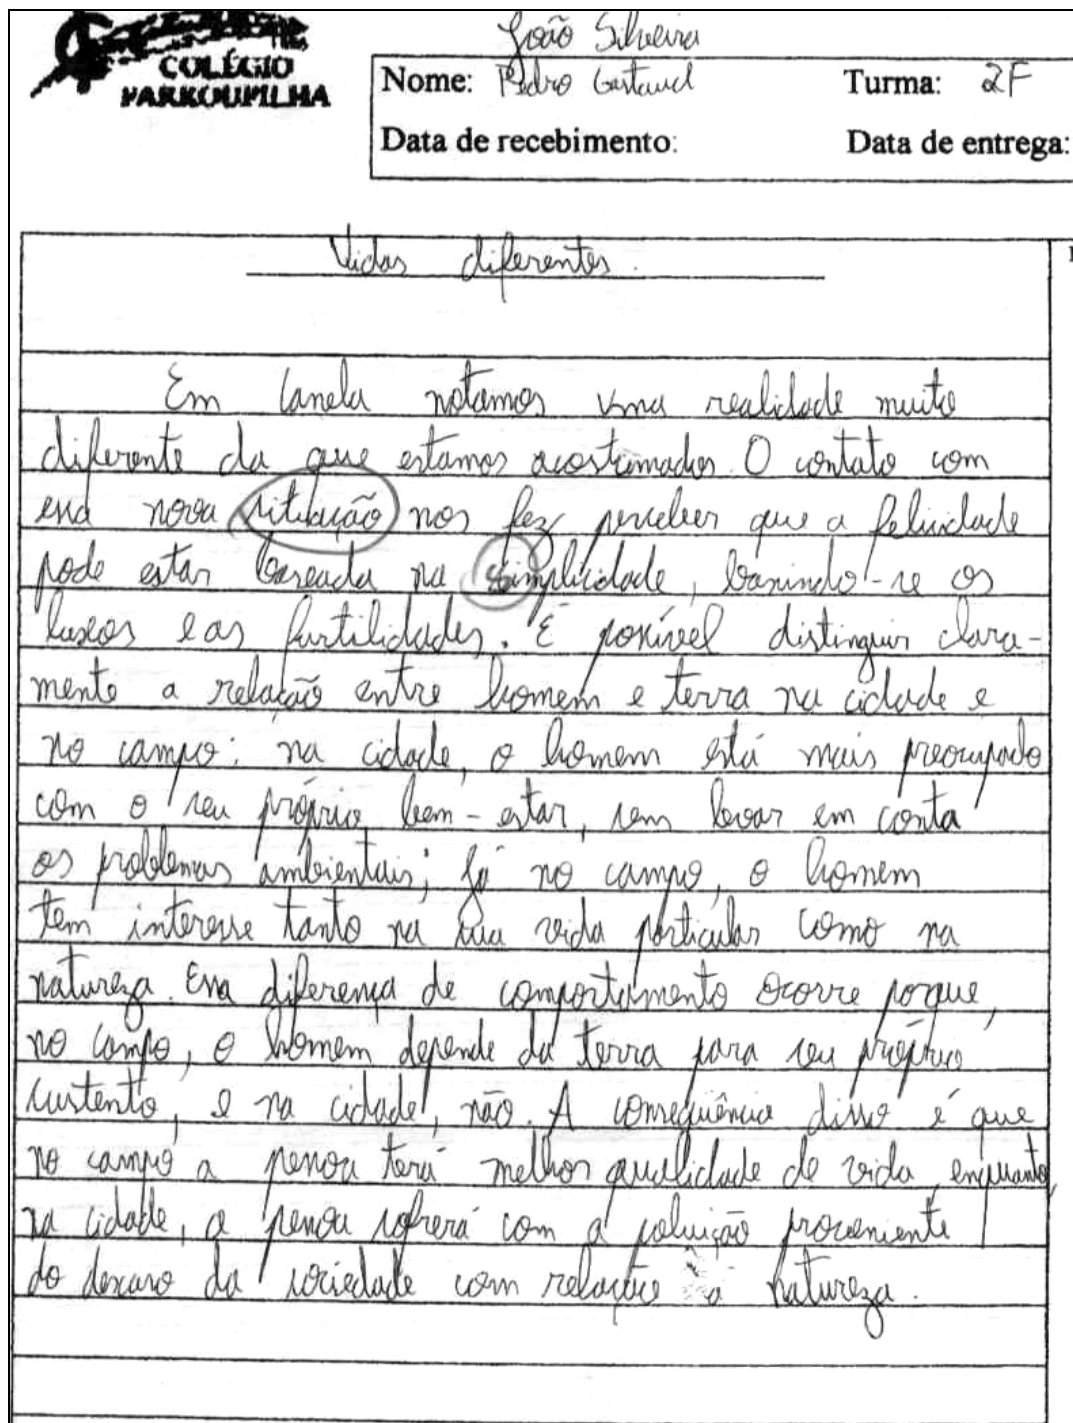 COLÉGIO
FARROUPILHA
João Silveira
Nome: Pedro Turma: 2F
Data de recebimento: Data de entrega:
Vidas diferentes.
Em Canela notamos uma realidade muito
diferente da que estamos acostumados. O contato com
essa nova situação nos fez perceber que a felicidade
pode estar baseada na simplicidade, banindo-se os
luxos e as futilidades. É possível distinguir clara-
mente a relação entre homem e terra na cidade e
no campo: na cidade, o homem está mais preocupado
com o seu próprio bem-estar, sem levar em conta
os problemas ambientais; já no campo, o homem
tem interesse tanto na sua vida particular como na
natureza. Essa diferença de comportamento ocorre porque,
no campo, o homem depende da terra para seu próprio
sustento, e na cidade, não. A consequência disso é que
no campo a pessoa terá melhor qualidade de vida, enquanto,
na cidade, a pessoa sofrerá com a poluição proveniente
do descaso da sociedade com relação à natureza.